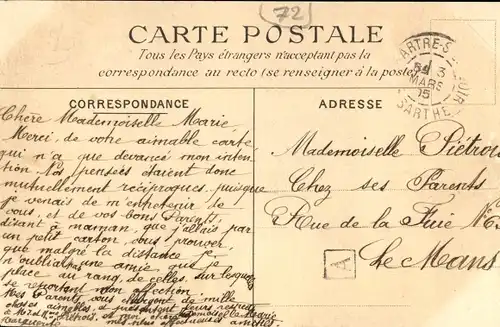 72
CARTE POSTALE
Tous les Pays étrangers n'acceptant pas la
correspondance au recto (se renseigner à la poste)
3
MARS
05
SARTHE
CORRESPONDANCE
Chère Mademoiselle Marie,
Merci, de votre aimable carte
qui n'a que devancé mon inten-
tion. Nos pensées étaient donc
mutuellement réciproques, puisque
je venais de m'entretenir de
vous, et de vos bons Parents,
disant à maman, que j'allais par
un petit carton, vous prouver,
que malgré la distance je
n'oubliais une amie que je
place au rang, de celles sur lesquelles
se reportent mon affection.
Mes Parents vous chargent de mille
choses aimables, et présentent leurs respects
à Mr et Mme Piétrois, et moi chère Mademoiselle Marie
Marguerite mes affectueuses amitiés
ADRESSE
Mademoiselle Piétrois
Chez ses Parents
Rue de la Fuie
Le Mans
A